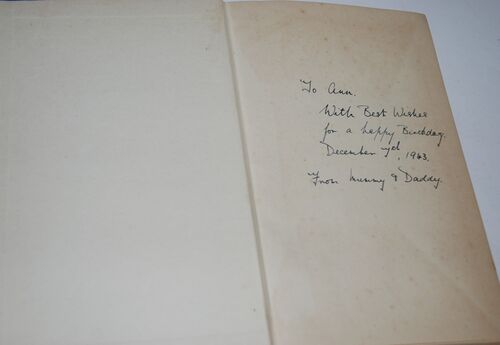 To Ann.
With Best Wishes
for a happy Birthday.
December 1943.
From Mummy & Daddy.